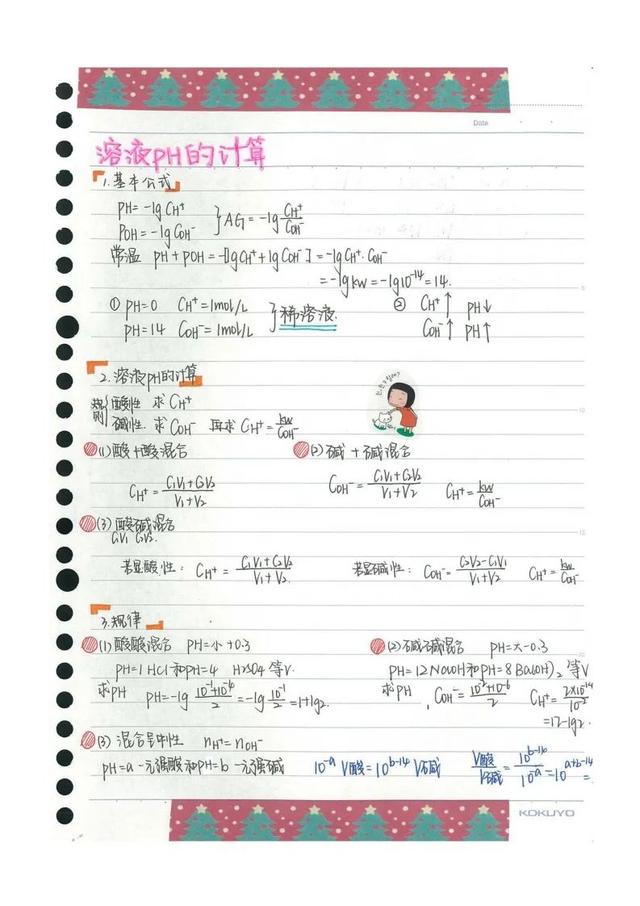 Date
溶液pH的计算
1.基本公式
pH=-lgCH⁺
pOH=-lgCOH⁻ }AG=-lg CH⁺/COH⁻
常温 pH+pOH=-[lgCH⁺+lgCOH⁻]=-lgCH⁺·COH⁻
=-lgkw=-lg10⁻¹⁴=14.
① pH=0 CH⁺=1mol/L
pH=14 COH⁻=1mol/L }稀溶液.
② CH⁺↑ pH↓
COH⁻↑ pH↑
2.溶液pH的计算
规则{酸性 求CH⁺
碱性 求COH⁻ 再求CH⁺=kw/COH⁻
(1)酸+酸混合
CH⁺=(C₁V₁+C₂V₂)/(V₁+V₂)
(2)碱+碱混合
COH⁻=(C₁V₁+C₂V₂)/(V₁+V₂) CH⁺=kw/COH⁻
(3)酸碱混合
C₁V₁ C₂V₂
若显酸性: CH⁺=(C₁V₁+C₂V₂)/(V₁+V₂) 若显碱性: COH⁻=(C₂V₂-C₁V₁)/(V₁+V₂) CH⁺=kw/COH⁻
3.规律
(1)酸酸混合 pH=小+0.3
pH=1 HCl和pH=4 H₂SO₄ 等V
求pH pH=-lg (10⁻¹+10⁻⁴)/2=-lg 10⁻¹/2=1+lg2
(2)碱碱混合 pH=大-0.3
pH=12 NaOH和pH=8 Ba(OH)₂ 等V
求pH, COH⁻=(10⁻²+10⁻⁶)/2 CH⁺=2×10⁻¹⁴/10⁻²
=12-lg2.
(3)混合呈中性 nH⁺=nOH⁻
pH=a 一元强酸和pH=b 一元强碱 10⁻ᵃ V酸=10ᵇ⁻¹⁴ V碱 V酸/V碱=10ᵇ⁻¹⁴/10⁻ᵃ=10ᵃ⁺ᵇ⁻¹⁴=
KOKUYO